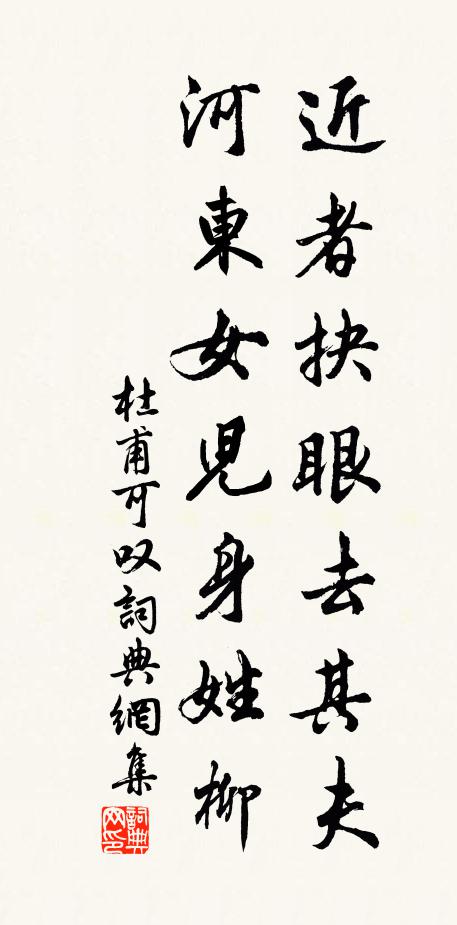 近者抉眼去其夫
河東女児身姓柳
杜甫可叹詞典網集
詞典网印